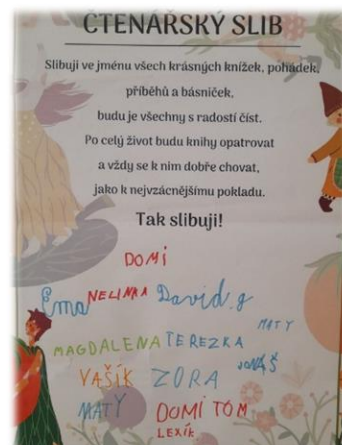 ČTENÁŘSKÝ SLIB
Slibuji ve jménu všech krásných knížek, pohádek,
příběhů a básniček,
budu je všechny s radostí číst.
Po celý život budu knihy opatrovat
a vždy se k nim dobře chovat,
jako k nejvzácnějšímu pokladu.
Tak slibuji!
DOMÍ
Ema NELINKA David.g
MATY
MAGDALENA TEREZKA
JONÁŠ
VAŠÍK ZORA
MATY DOMI TOM
LEXÍK